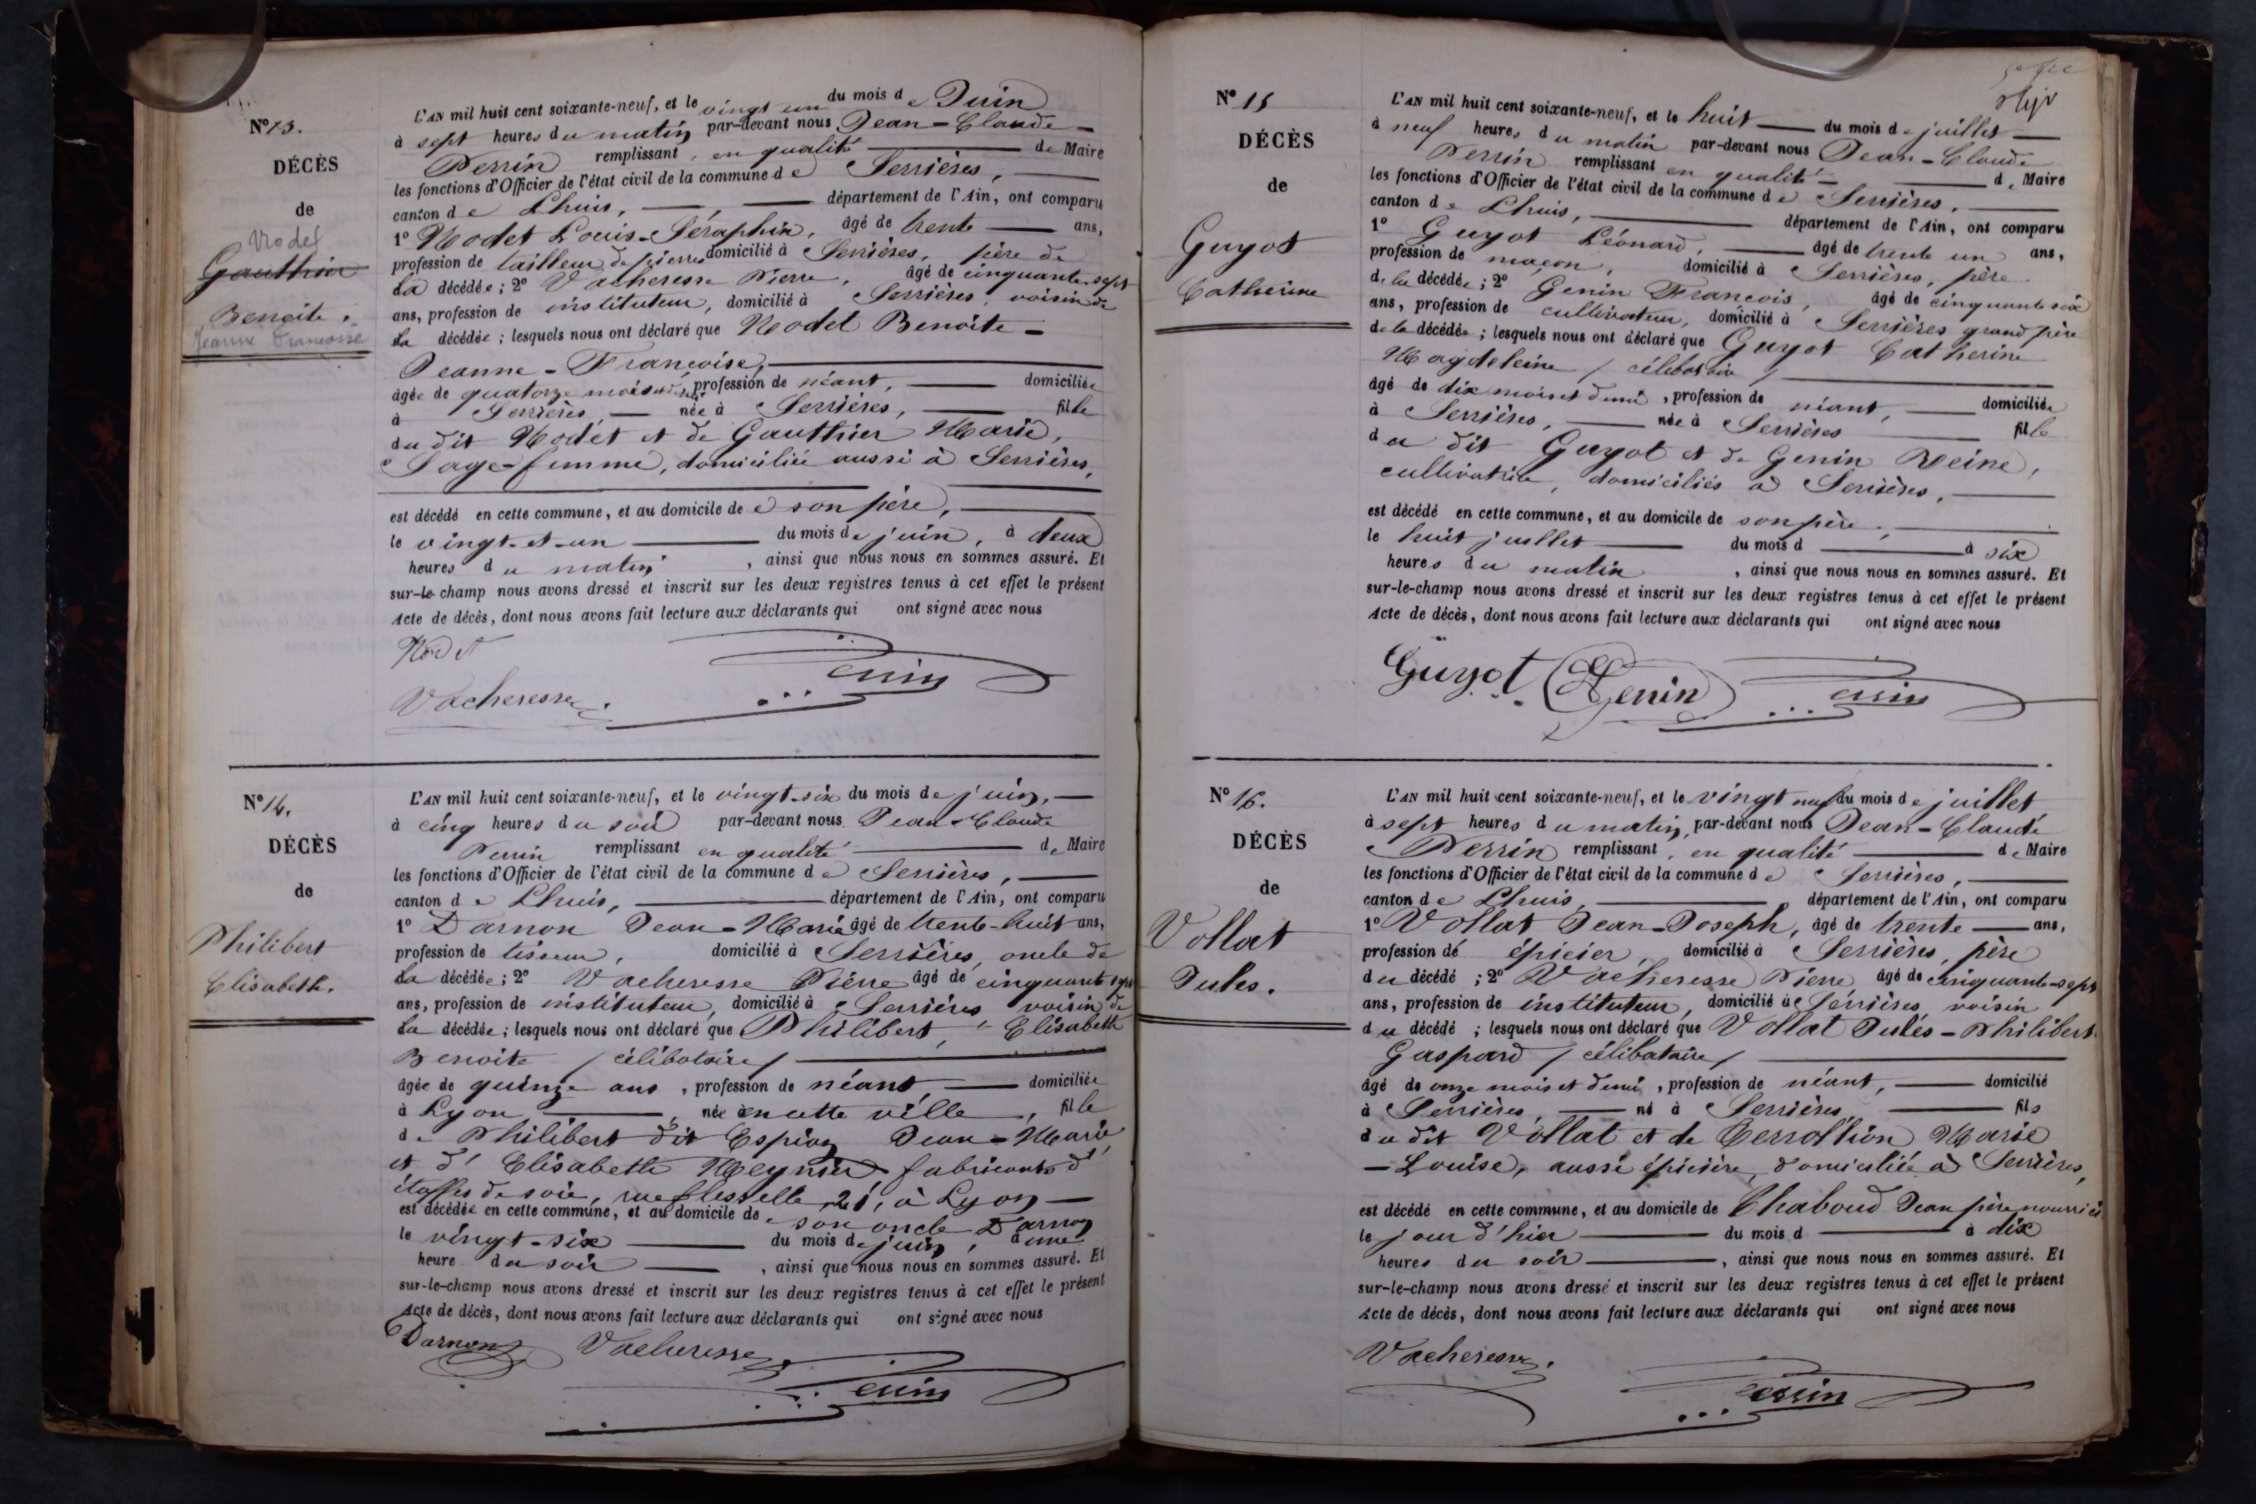 N° 13.
DÉCÈS
de
Nodet
Gauthier
Benoite.
Jeanne Francoise
L'AN mil huit cent soixante-neuf, et le vingt un du mois de Juin
à sept heures du matin par-devant nous Jean-Claude
Perrin remplissant, en qualité de Maire
les fonctions d'Officier de l'état civil de la commune de Serrières,
canton de Lhuis, département de l'Ain, ont comparu
1° Nodet Louis-Séraphin, âgé de trente ans,
profession de tailleur de pierres domicilié à Serrières, père de
la décédée; 2° Vacheresse Pierre, âgé de cinquante-sept
ans, profession de instituteur, domicilié à Serrières, voisin de
la décédée; lesquels nous ont déclaré que Nodet Benoite-
Jeanne-Francoise,
âgée de quatorze mois profession de néant, domiciliée
à Serrières, née à Serrières, fille
du dit Nodet et de Gauthier Marie,
Sage-femme, domiciliée aussi à Serrières,
est décédé en cette commune, et au domicile de son père,
le vingt-et-un du mois de juin, à deux
heures du matin, ainsi que nous nous en sommes assuré. Et
sur-le-champ nous avons dressé et inscrit sur les deux registres tenus à cet effet le présent
Acte de décès, dont nous avons fait lecture aux déclarants qui ont signé avec nous
Nodet
Perrin
Vacheresse
N° 14.
DÉCÈS
de
Philibert
Elisabeth.
L'AN mil huit cent soixante-neuf, et le vingt-six du mois de juin,
à cinq heures du soir par-devant nous Jean-Claude
Perrin remplissant en qualité de Maire
les fonctions d'Officier de l'état civil de la commune de Serrières,
canton de Lhuis, département de l'Ain, ont comparu
1° Darnon Jean-Marie âgé de trente-huit ans,
profession de tisseur, domicilié à Serrières, oncle de
la décédée; 2° Vacheresse Pierre âgé de cinquante sept
ans, profession de instituteur, domicilié à Serrières voisin de
la décédée; lesquels nous ont déclaré que Philibert, Elisabeth
Benoite / célibataire /
âgée de quinze ans, profession de néant, domiciliée
à Lyon, née en cette ville, fille
de Philibert dit Espion Jean-Marie
et d' Elisabeth Meynier fabricants d'
étoffes de soie, rue Flesselle, 21, à Lyon
est décédée en cette commune, et au domicile de son oncle Darnon
le vingt-six du mois de juin, à une
heure du soir, ainsi que nous nous en sommes assuré. Et
sur-le-champ nous avons dressé et inscrit sur les deux registres tenus à cet effet le présent
Acte de décès, dont nous avons fait lecture aux déclarants qui ont signé avec nous
Darnon Vacheresse
Perrin
N° 15
DÉCÈS
de
Guyot
Catherine
L'AN mil huit cent soixante-neuf, et le huit du mois de juillet
à neuf heures du matin par-devant nous Jean-Claude
Perrin remplissant en qualité de Maire
les fonctions d'Officier de l'état civil de la commune de Serrières,
canton de Lhuis, département de l'Ain, ont comparu
1° Guyot Léonard, âgé de trente un ans,
profession de maçon, domicilié à Serrières, père
de la décédée; 2° Genin Francois, âgé de cinquante six
ans, profession de cultivateur, domicilié à Serrières grand père
de la décédée; lesquels nous ont déclaré que Guyot Catherine
Magdeleine / célibataire /
âgé de dix mois et demi, profession de néant, domiciliée
à Serrières, née à Serrières fille
du dit Guyot et de Genin Reine,
cultivatrice, domiciliés à Serrières,
est décédé en cette commune, et au domicile de son père,
le huit juillet du mois d à six
heures du matin, ainsi que nous nous en sommes assuré. Et
sur-le-champ nous avons dressé et inscrit sur les deux registres tenus à cet effet le présent
Acte de décès, dont nous avons fait lecture aux déclarants qui ont signé avec nous
Guyot Genin Perrin
N° 16.
DÉCÈS
de
Vollat
Jules.
L'AN mil huit cent soixante-neuf, et le vingt neuf du mois de juillet
à sept heures du matin, par-devant nous Jean-Claude
Perrin remplissant, en qualité de Maire
les fonctions d'Officier de l'état civil de la commune de Serrières,
canton de Lhuis, département de l'Ain, ont comparu
1° Vollat Jean-Joseph, âgé de trente ans,
profession de épicier, domicilié à Serrières, père
du décédé; 2° Vacheresse Pierre âgé de cinquante-sept
ans, profession de instituteur, domicilié à Serrières, voisin
du décédé; lesquels nous ont déclaré que Vollat Jules-Philibert
Gaspard / célibataire /
âgé de onze mois et demi, profession de néant, domicilié
à Serrières, né à Serrières, fils
du dit Vollat et de Marie
-Louise, aussi épicière, domiciliée à Serrières,
est décédé en cette commune, et au domicile de Chaboud Jean père nourricier
le jour d'hier du mois d à dix
heures du soir, ainsi que nous nous en sommes assuré. Et
sur-le-champ nous avons dressé et inscrit sur les deux registres tenus à cet effet le présent
Acte de décès, dont nous avons fait lecture aux déclarants qui ont signé avec nous
Vacheresse
Perrin